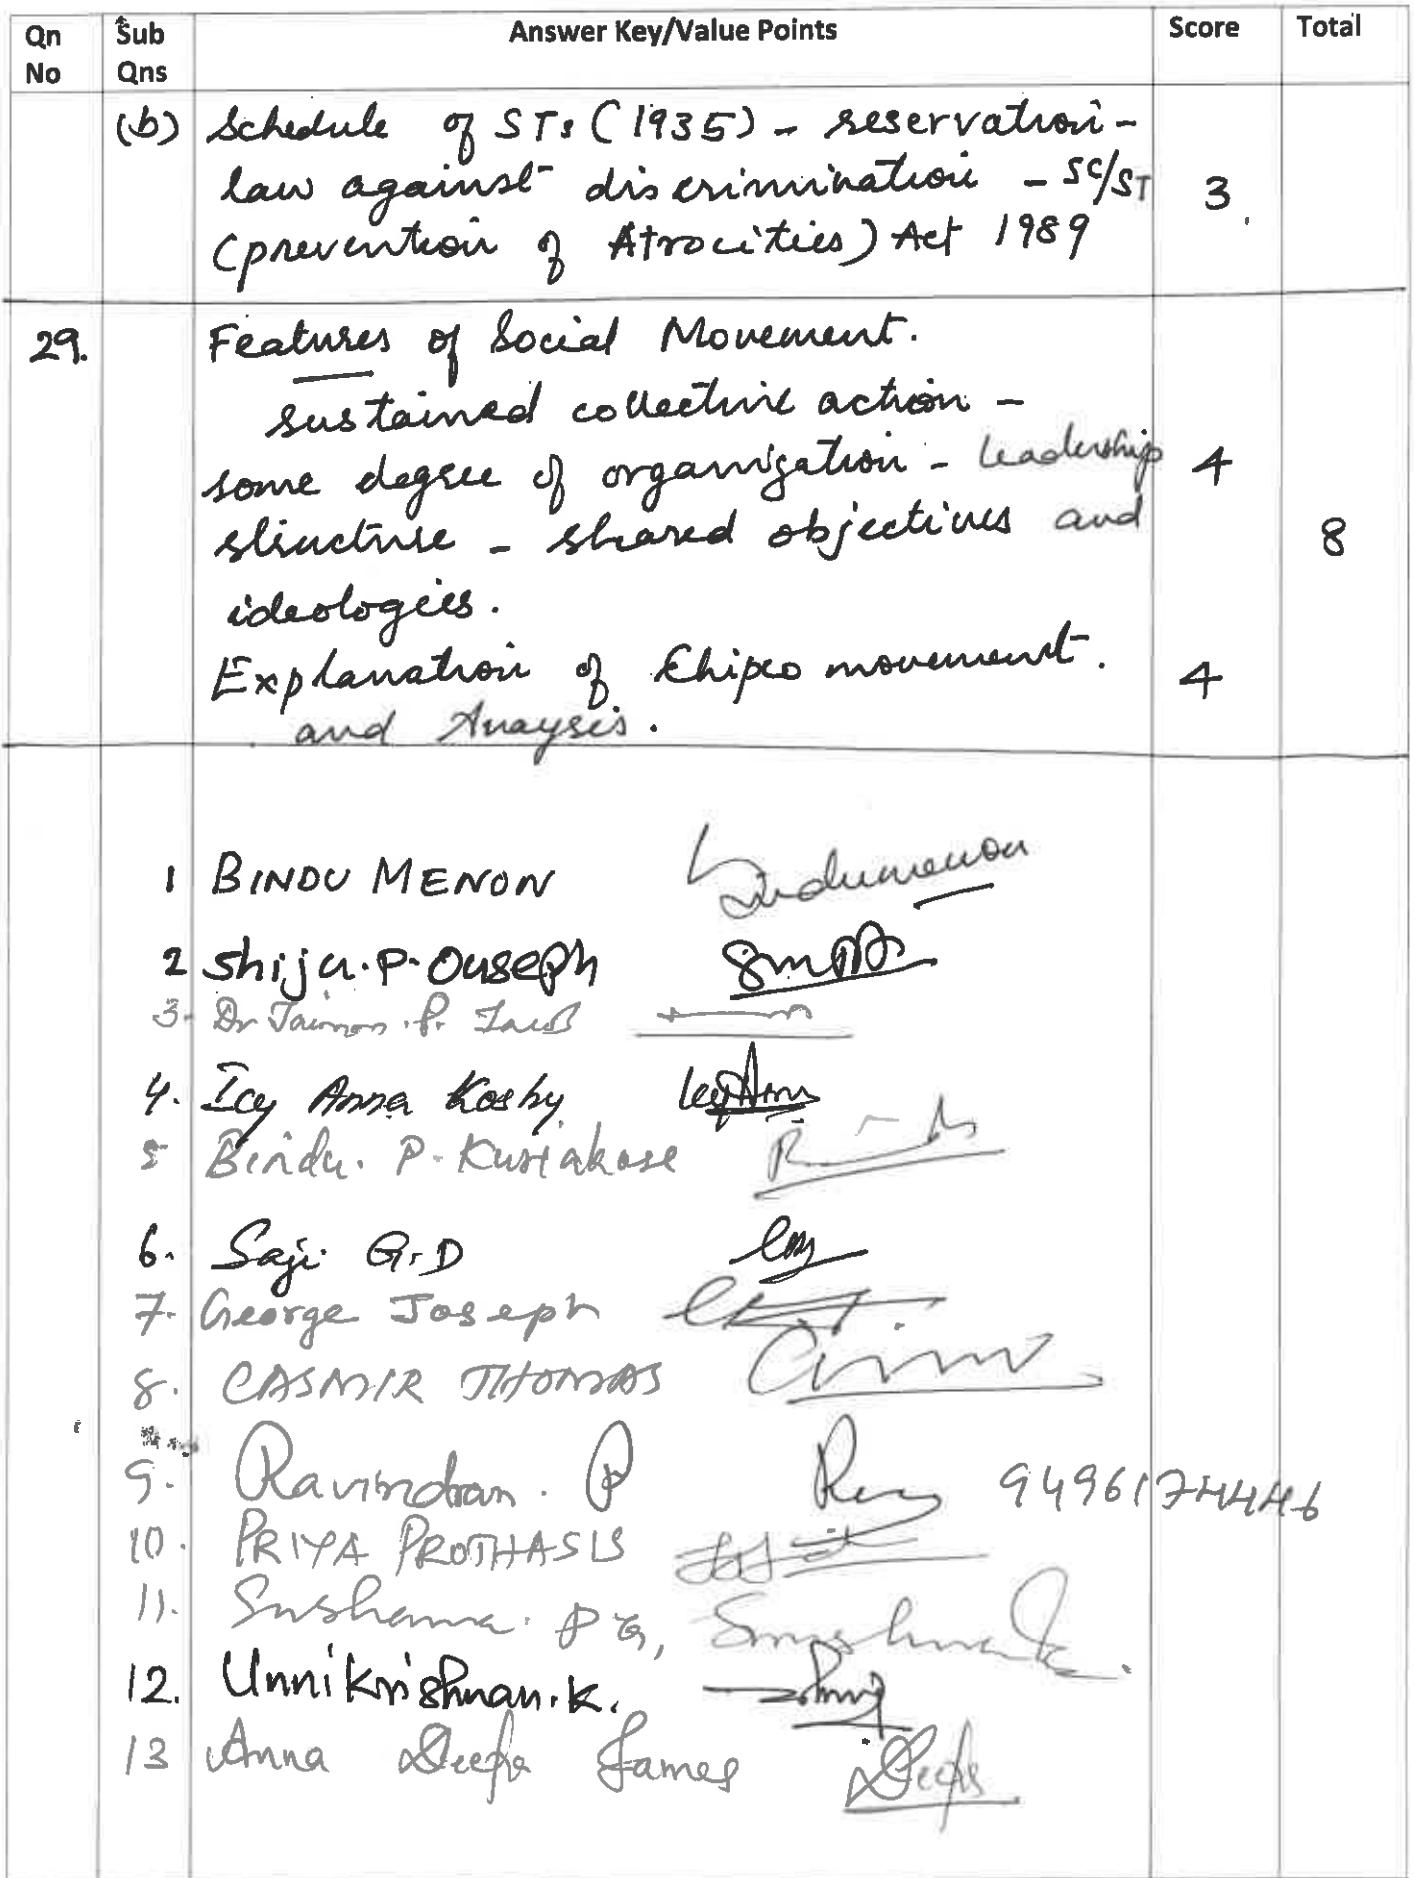 Qn No Sub Qns Answer Key/Value Points Score Total
(b) Schedule of STs (1935) - reservation -
law against discrimination - SC/ST 3
(prevention of Atrocities) Act 1989
29. Features of Social Movement.
sustained collective action -
some degree of organization - leadership 4
structure - shared objectives and 8
ideologies.
Explanation of Chipco movement. 4
and Anaysis.
1 BINDU MENON Bindumenon
2 Shiju.P.Ouseph
3. Dr
4. Icy Anna Koshy
5 Bindu. P. Kuriakose
6. Saji G.D
7. George Joseph
8. CASMIR THOMAS
9. Ravindran. P 9496174446
10. PRIYA PROTHASIS
11. Sushama. P G,
12. Unnikrishnan.K.
13 Anna Deepa James Deepa